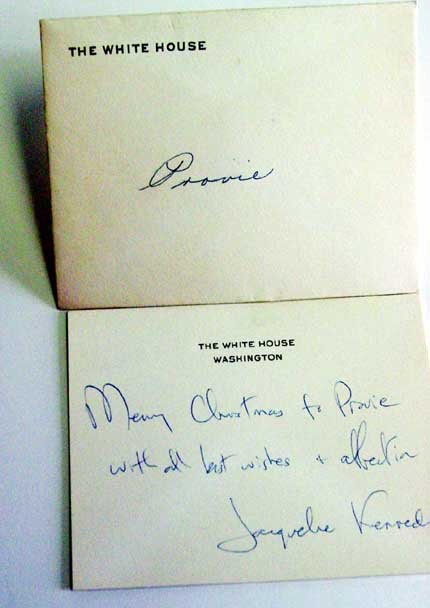 THE WHITE HOUSE
Provie
THE WHITE HOUSE
WASHINGTON
Merry Christmas to Provie
with all best wishes + affection
Jacqueline Kenned